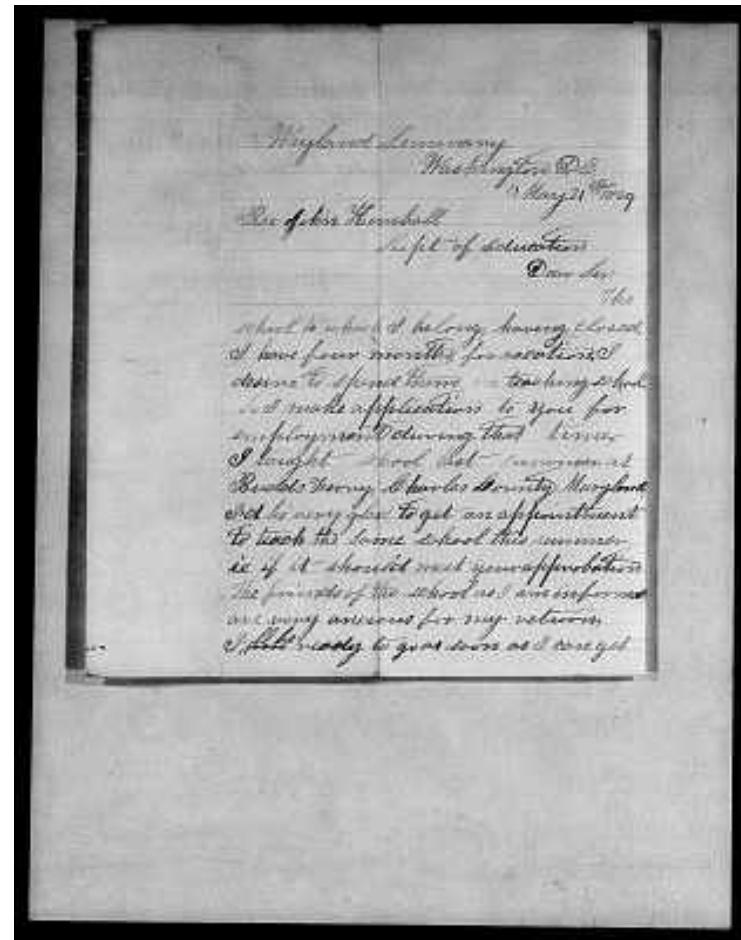 Wayland Seminary
Washington D.C.
May 21st 1869
Rev John Kimball
Supt of Education
Dear Sir
The
school to which I belong having closed
I have four months for vacation, I
desire to spend time in teaching school
so I make application to you for
employment during that time
I taught school last summer at
Budds Ferry Charles County Maryland
I'd be very glad to get an appointment
to teach the same school this summer
ie if it should meet your approbation
The friends of the school as I am informed
are very anxious for my return
I ready to go as soon as I can get